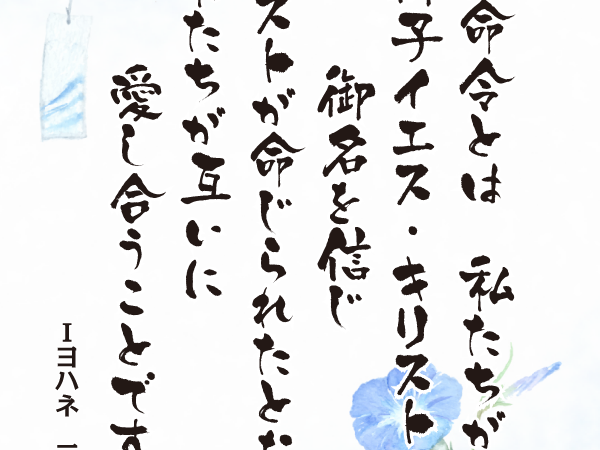 命令とは 私たちが
子イエス・キリスト
御名を信じ
ストが命じられたとお
たちが互いに
愛し合うことです
Ⅰヨハネ